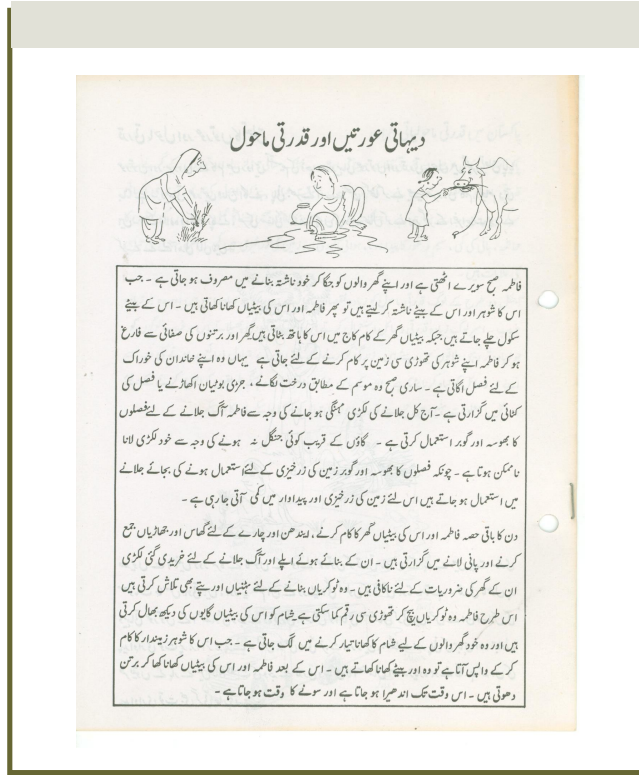 دیہاتی عورتیں اور قدرتی ماحول
فاطمہ صبح سویرے اٹھتی ہے اور اپنے گھر والوں کو جگا کر خود ناشتہ بنانے میں مصروف ہو جاتی ہے ۔ جب
اس کا شوہر اور اس کے بیٹے ناشتہ کر لیتے ہیں تو پھر فاطمہ اور اس کی بیٹیاں کھانا کھاتی ہیں ۔ اس کے بیٹے
سکول چلے جاتے ہیں جبکہ بیٹیاں گھر کے کام کاج میں اس کا ہاتھ بٹاتی ہیں گھر اور برتنوں کی صفائی سے فارغ
ہو کر فاطمہ اپنے شوہر کی تھوڑی سی زمین پر کام کرنے کے لئے جاتی ہے یہاں وہ اپنے خاندان کی خوراک
کے لئے فصل اگاتی ہے ۔ ساری صبح وہ موسم کے مطابق درخت لگانے ، جڑی بوٹیاں اکھاڑنے یا فصل کی
کٹائی میں گزارتی ہے ۔ آج کل جلانے کی لکڑی مہنگی ہو جانے کی وجہ سے فاطمہ آگ جلانے کے لئے فصلوں
کا بھوسہ اور گوبر استعمال کرتی ہے ۔ گاؤں کے قریب کوئی جنگل نہ ہونے کی وجہ سے خود لکڑی لانا
ناممکن ہوتا ہے ۔ چونکہ فصلوں کا بھوسہ اور گوبر زمین کی زرخیزی کے لئے استعمال ہونے کی بجائے جلانے
میں استعمال ہو جاتے ہیں اس لئے زمین کی زرخیزی اور پیداوار میں کمی آتی جا رہی ہے ۔
دن کا باقی حصہ فاطمہ اور اس کی بیٹیاں گھر کا کام کرنے ، ایندھن اور چارے کے لئے گھاس اور جھاڑیاں جمع
کرنے اور پانی لانے میں گزارتی ہیں ۔ ان کے بنائے ہوئے اپلے اور آگ جلانے کے لئے خریدی گئی لکڑی
ان کے گھر کی ضروریات کے لئے ناکافی ہیں ۔ وہ ٹوکریاں بنانے کے لئے ٹہنیاں اور پتے بھی تلاش کرتی ہیں
اس طرح فاطمہ وہ ٹوکریاں بیچ کر تھوڑی سی رقم کما سکتی ہے شام کو اس کی بیٹیاں گایوں کی دیکھ بھال کرتی
ہیں اور وہ خود گھر والوں کے لیے شام کا کھانا تیار کرنے میں لگ جاتی ہے ۔ جب اس کا شوہر زمیندار کا کام
کر کے واپس آتا ہے تو وہ اور بیٹے کھانا کھاتے ہیں ۔ اس کے بعد فاطمہ اور اس کی بیٹیاں کھانا کھا کر برتن
دھوتی ہیں ۔ اس وقت تک اندھیرا ہو جاتا ہے اور سونے کا وقت ہو جاتا ہے ۔